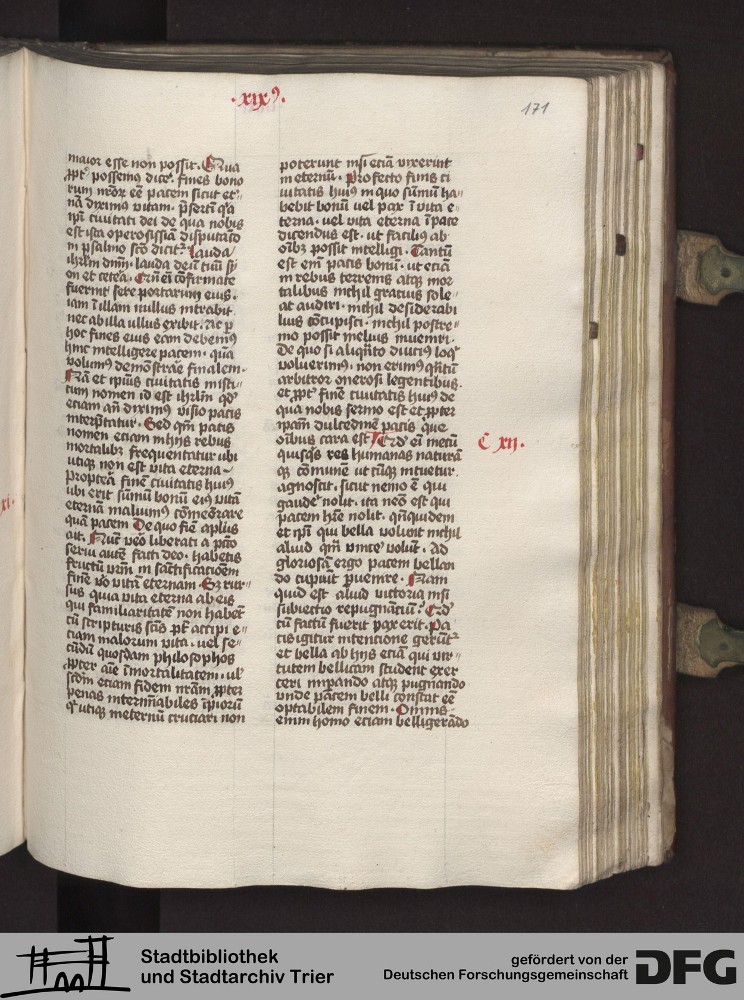 ·xixꝰ.
171
maior esse non possit. Qua
ꝓpt̕ possemꝰ dice᷑ fines bono
rum nr̄oꝝ eē pacem sicut et᷑
nā diximꝰ vitam. p̄serti q̓a
ip̄i ciuitati dei de qua nobis
est ista operosissiā disputatō
in psalmo scō dicit᷑. Lauda
ihrl̄m dn̄m. lauda deū tuū sy
on et cetēa. Qm̄ ei ɔfirmate
fuerint sere portarum eius.
iam ī illam nullus intrabit
nec ab illa ullus exibit. Ac ꝑ
hoc fines eius eam debemꝰ
hinc intelligere pacem. quā
volumꝰ demonstrāe finalem.
Nā et ipiꝰ ciuitatis misti
cum nomen id est ihrl̄m qd̕
eciam añ diximꝰ visio pacis
interp̄tatur. Sed qm̄ pacis
nomen eciam in hijs rebus
mortalibꝫ frequentatur vbi
vtiqꝫ non est vita eterna
proptea finē ciuitatis huiꝰ
vbi erit sūmū bonū eiꝰ vitā
eternā maluimꝰ cōmeōrare
quā pacem De quo fiē aplus
ait. Nūc veo liberati a pctō
serui autē facti deo. habetis
fructū vrm̄ in sāctificacioēm
finē vo vitā eternam. Sꝫ rur
sus quia vita eterna ab eis
qui familiaritatē non habēt
cū scripturis scīs pt̄ accipi e
ciam malorum vita. vel se
cūdū quosdam philosophos
ꝓpter aīe īmortalitatem. vl̕
scd̄m eciam fidem nr̄am ꝓpter
penas intermīabiles īpiorū
q̓ vtiqꝫ ineternū cruciari non
poterunt nisi eciā vixerint
in eternū. Profecto finis ci
uitatis huiꝰ in quo sūmū ha
bebit bonū vel pax ī vita e
terna. vel vita eterna ī pace
dicendus est. vt faciliꝰ ab
oībꝫ possit intelligi. Tantū
est em̄ pacis bonū. vt eciā
in rebus terrenis atqꝫ mor
talibus nichil gratius sole
at audiri. nichil desiderabi
lius cōcupisci. nichil postre
mo possit melius inueniri.
De quo si aliqn̄to diuciꝰ loqi
voluerimꝰ. non erimꝰ qn̄tū
arbitror onerosi legentibus.
et ꝓpt̕ finē ciuitatis huiꝰ de
qua nobis sermo est et ꝓpter
ipam dulcedinē pacis que
oībus cara est Qd̕ ei mecū
quisqꝫ res humanas naturā
qꝫ comunē vtcūqꝫ intuetur.
agnoscit. sicut nemo ē qui
gaude᷑ nolit. ita neō est qui
pacem hr̄e nolit. qn̄quidem
et ip̄i qui bella volunt nichil
aliud qm̄ vince᷑ volūt. Ad
gloriosā ergo pacem bellan
do cupiūt ꝑuenire. Nam
quid est aliud victoria nisi
subiectio repugnātiū? Qd̕
cū factū fuerit pax erit. Pa
cis igitur intencione gerūt᷑
et bella ab hijs eciā qui vir
tutem bellicam student exer
ceri inpando atqꝫ pugnando
vnde pacem belli constat eē
optabilem finem. Omnis
enim homo eciam belligerādo
C xij.
xi.
Stadtbibliothek
und Stadtarchiv Trier
gefördert von der
Deutschen Forschungsgemeinschaft
DFG